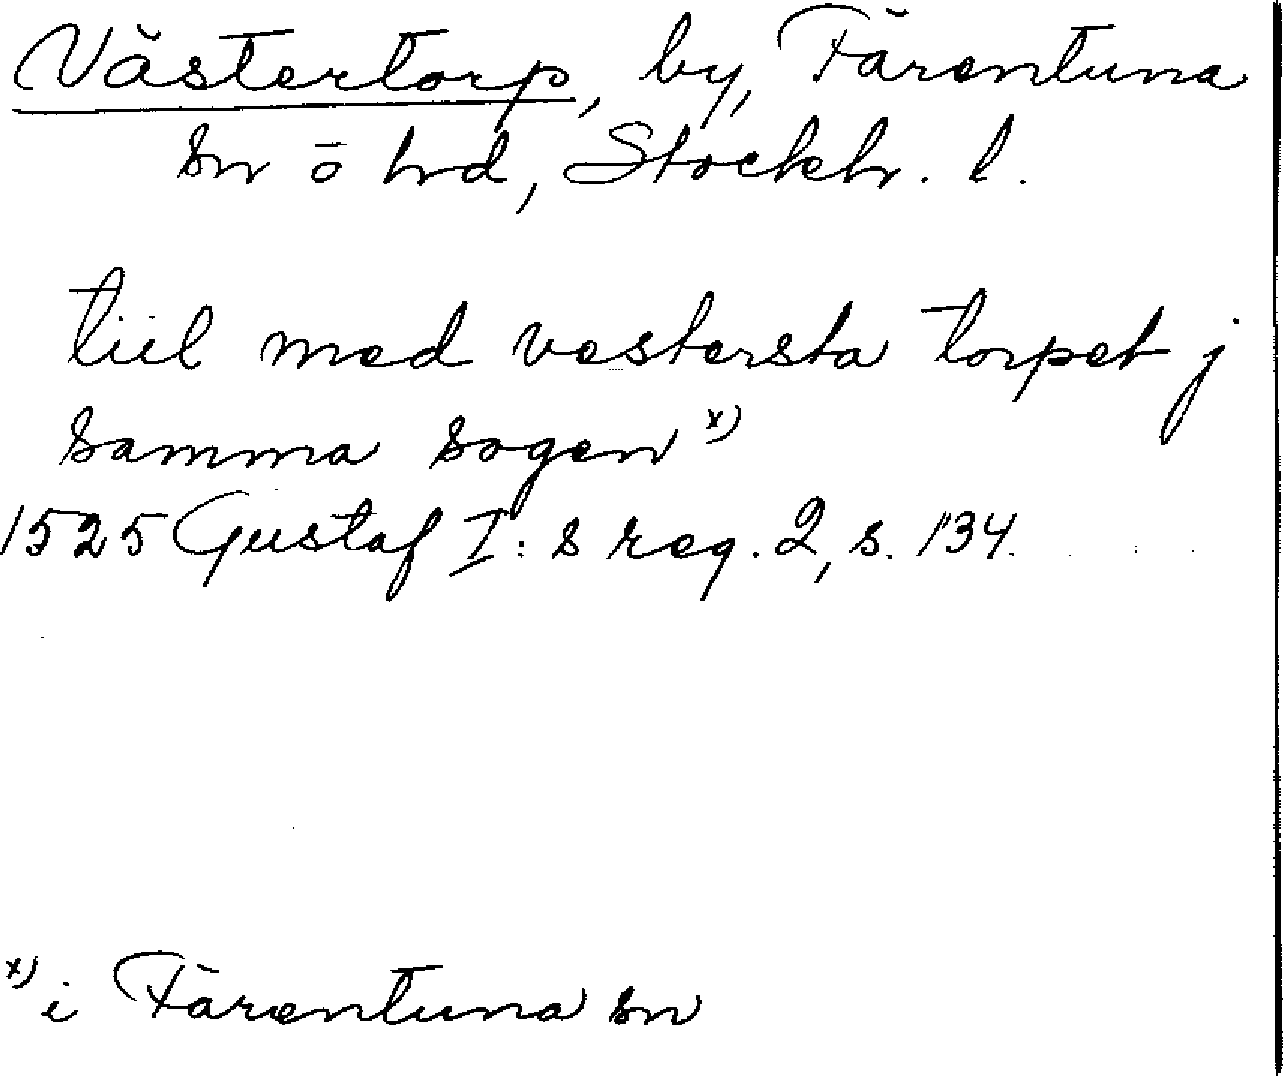 Västertorp, by, Färentuna
sn o hd, Stockh. l.
tiil med vestersta torpet j
samma sogen x)
1525 Gustaf I: s reg. 2, s. 134.
x) i Färentuna sn